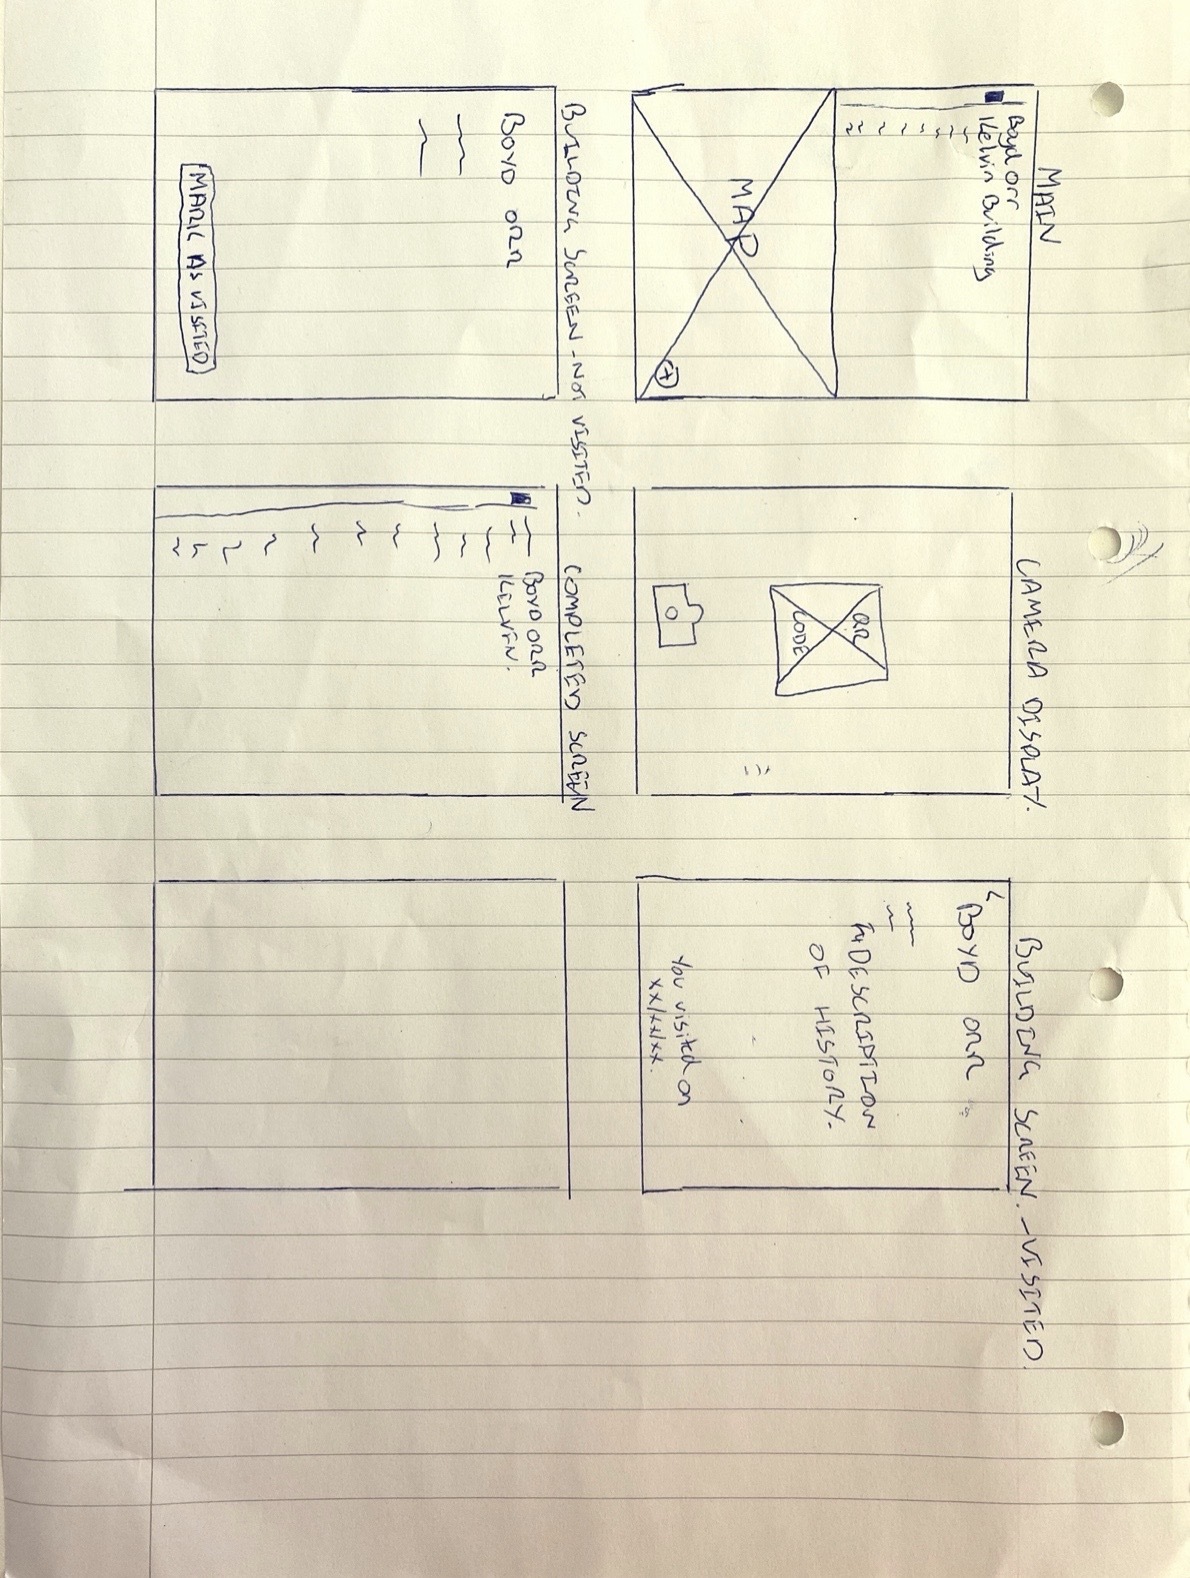 MAIN
Boyd orr
Kelvin Building
MAP
+
CAMERA DISPLAY.
QR
CODE
BUILDING SCREEN. - VISITED.
<
BOYD ORR
DESCRIPTION
OF HISTORY.
You visited on
xx/xx/xx.
BUILDING SCREEN - NOT VISITED.
BOYD ORR
MARK AS VISITED
COMPLETED SCREEN
BOYD ORR
KELVIN.